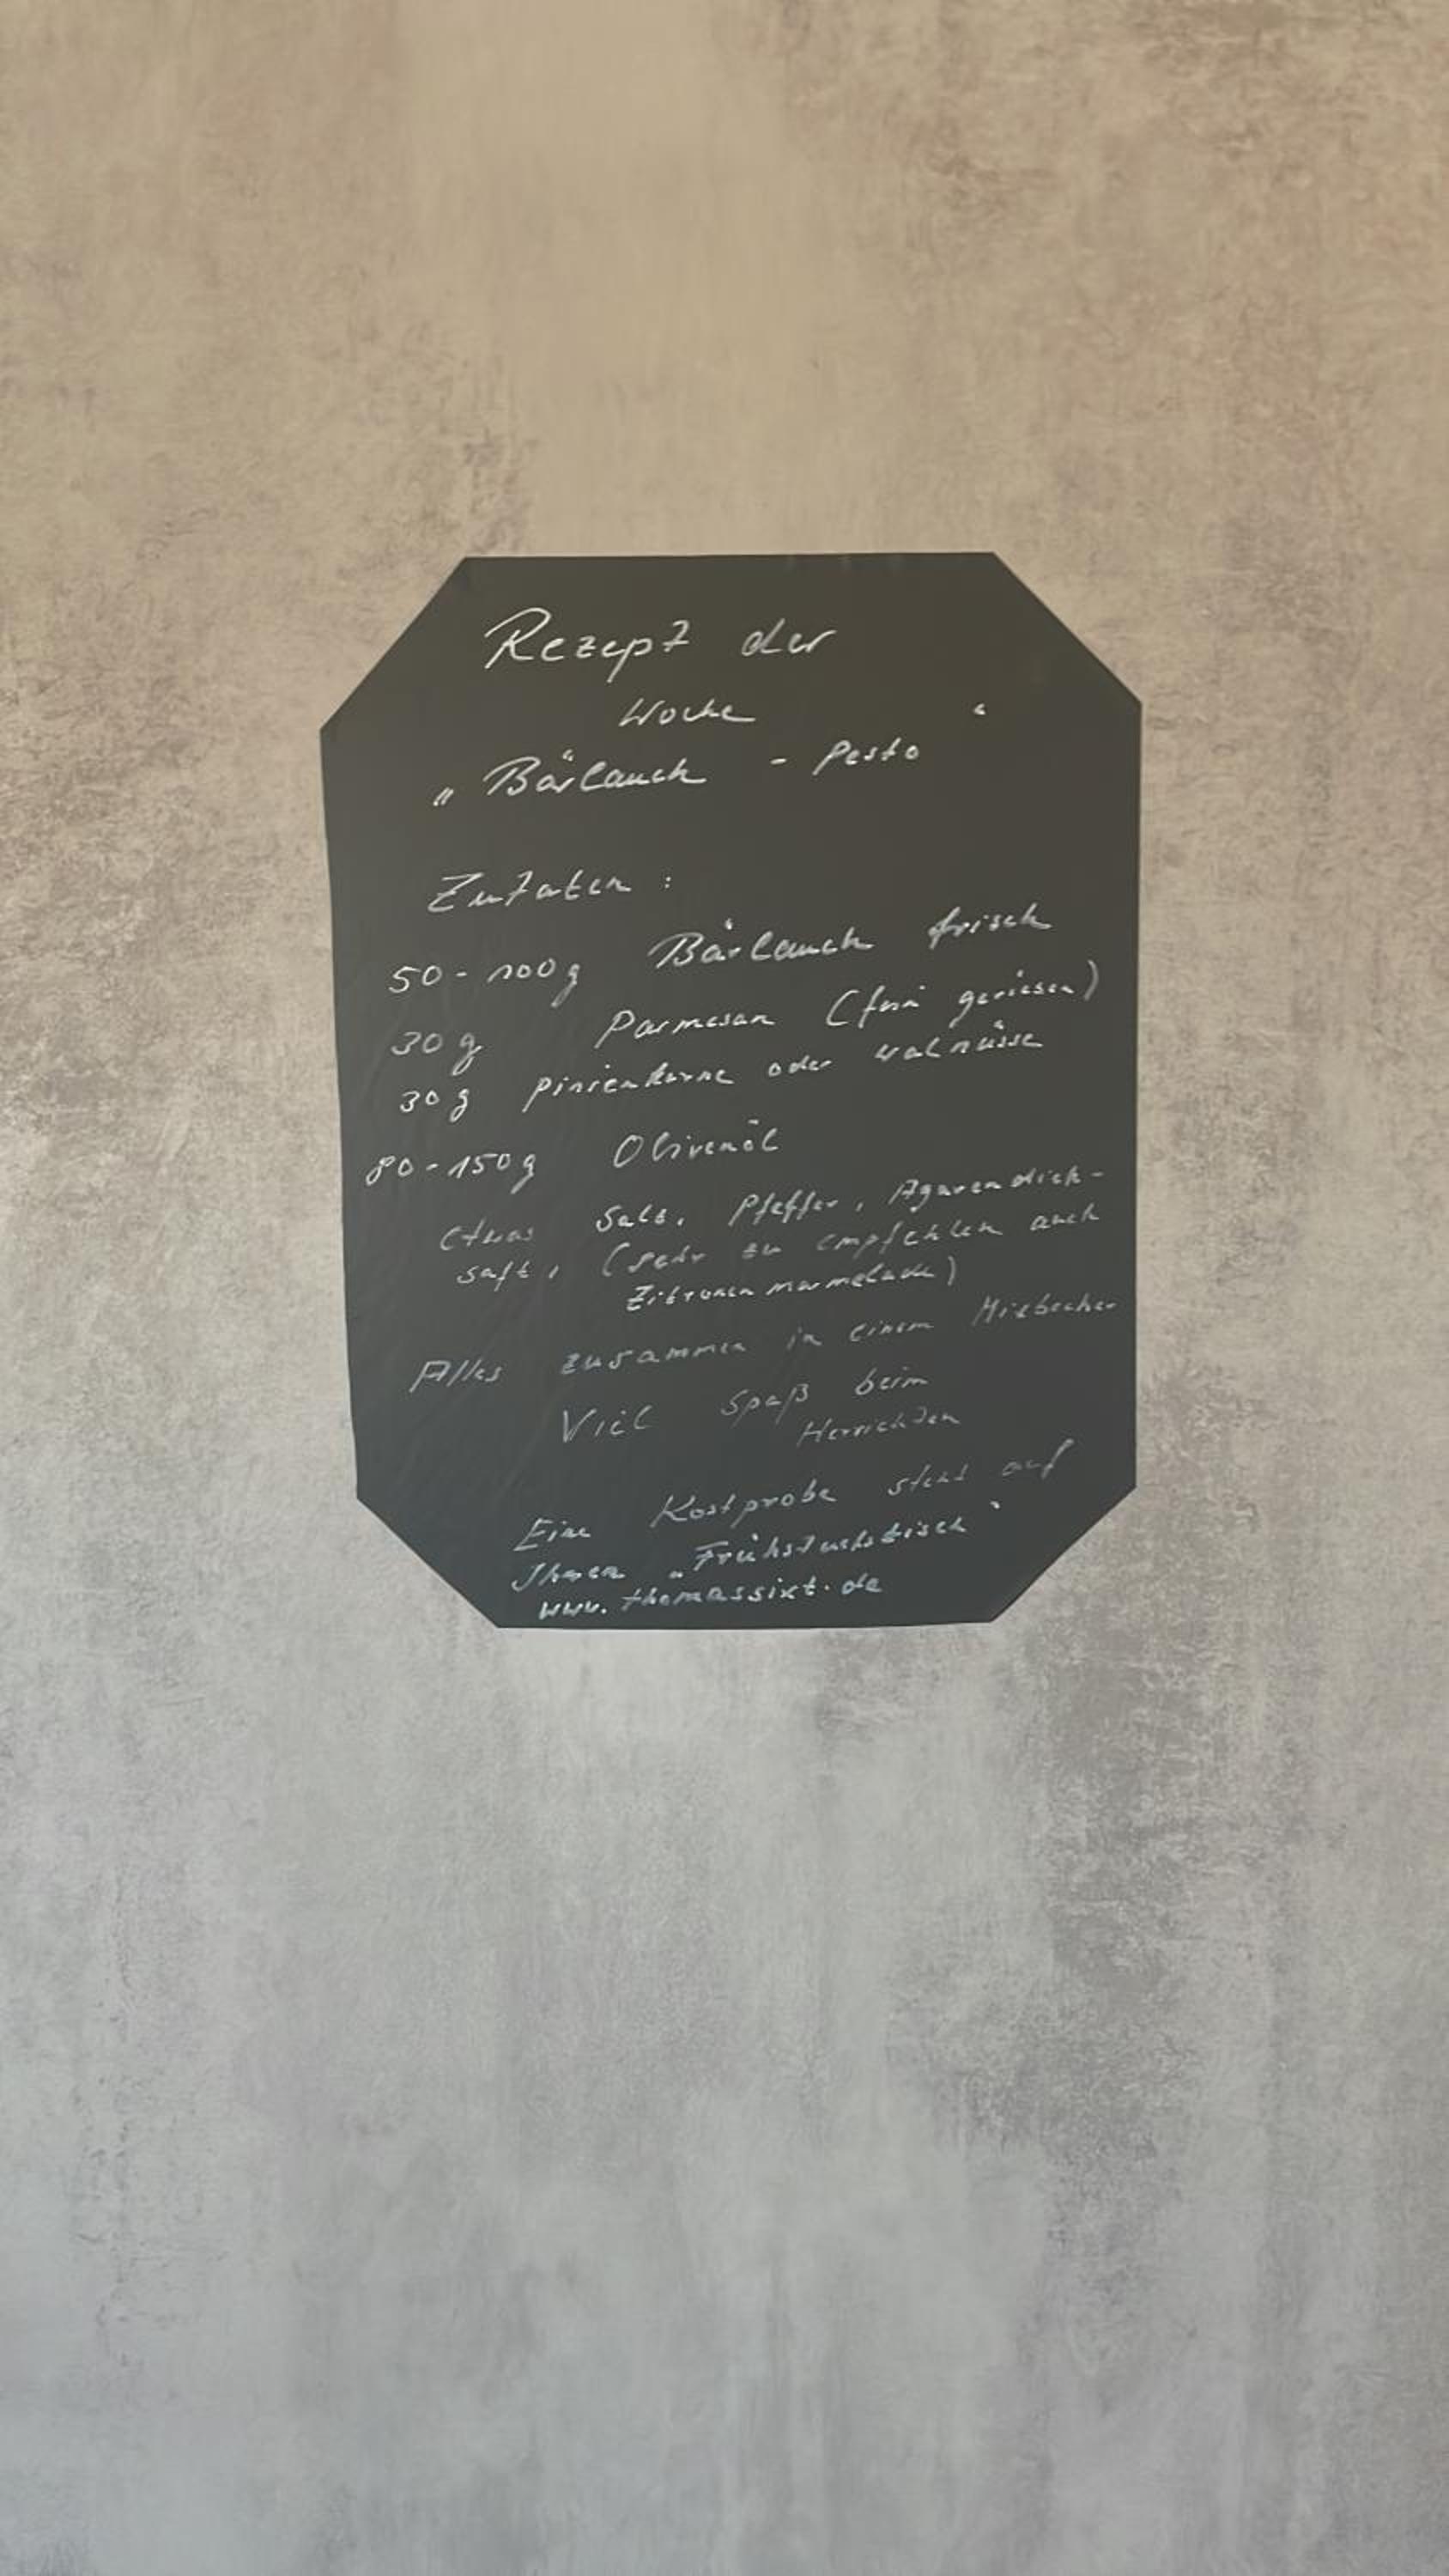 Rezept der
Woche
„Bärlauch - Pesto“
Zutaten:
50-100g Bärlauch frisch
30g Parmesan (fein geriesen)
30g Pinienkerne oder walnüsse
80-150g Olivenöl
etwas Salz, Pfeffer, Agavendick-
saft, (sehr zu empfehlen auch
Zitronenmarmelade)
Alles zusammen in einem Mixbecher
Viel Spaß beim
Herrichten
Eine Kostprobe steht auf
Ihrem „Frühstückstisch“
www.thomassixt.de